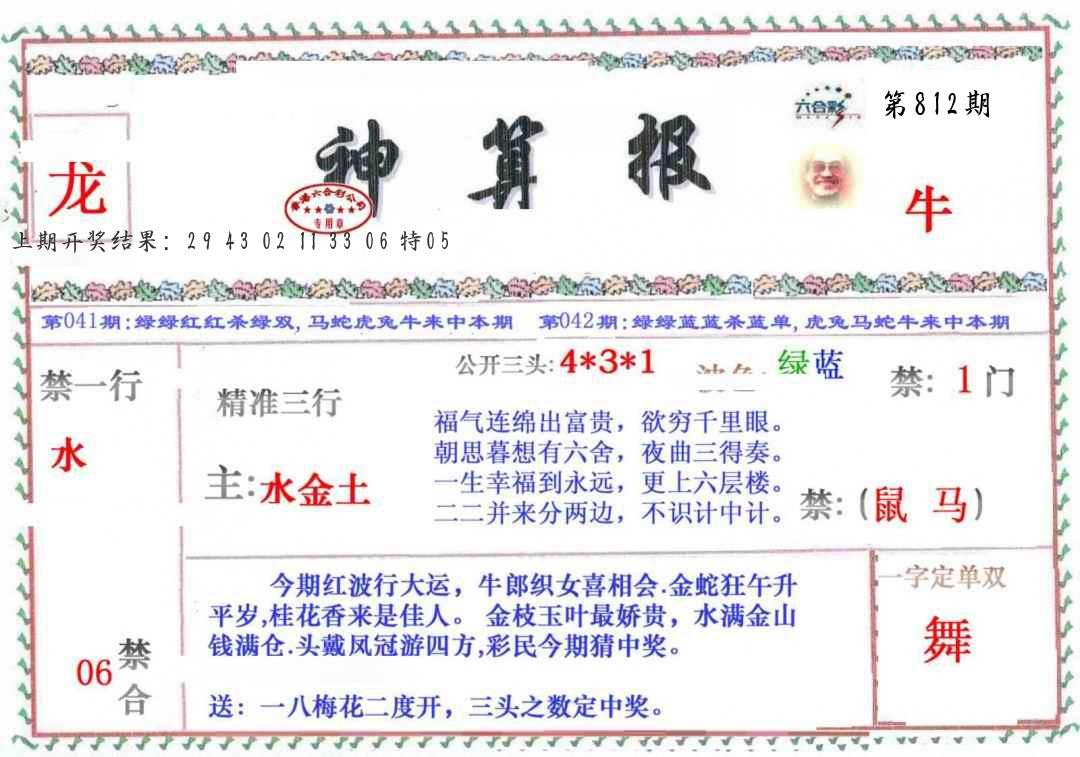 六合彩
第812期
神算报
龙
香港六合彩公司
专用章
牛
上期开奖结果：29 43 02 11 33 06 特05
第041期:绿绿红红杀绿双,马蛇虎兔牛来中本期 第042期:绿绿蓝蓝杀蓝单,虎兔马蛇牛来中本期
禁一行
水
精准三行
主:水金土
公开三头:4*3*1
绿蓝
禁: 1门
福气连绵出富贵，欲穷千里眼。
朝思暮想有六舍，夜曲三得奏。
一生幸福到永远，更上六层楼。
二二并来分两边，不识计中计。
禁:(鼠 马)
今期红波行大运，牛郎织女喜相会.金蛇狂午升
平岁,桂花香来是佳人。金枝玉叶最娇贵，水满金山
钱满仓.头戴凤冠游四方,彩民今期猜中奖。
送：一八梅花二度开，三头之数定中奖。
06
禁合
一字定单双
舞